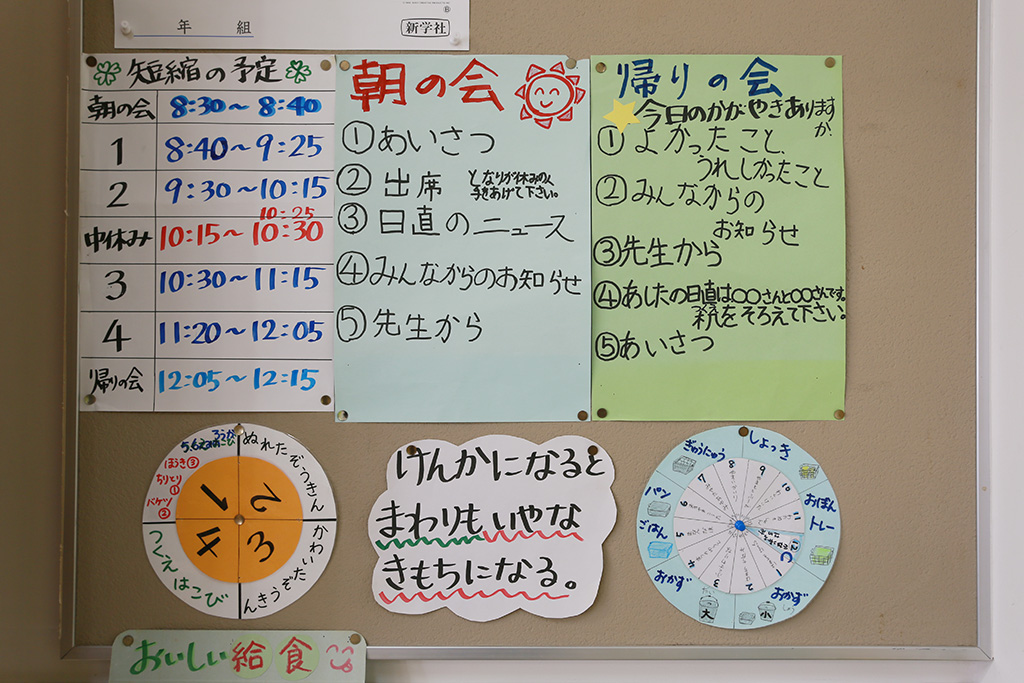 年 組
新学社
短縮の予定
朝の会 8:30～8:40
1 8:40～9:25
2 9:30～10:15
10:25
中休み 10:15～10:30
3 10:30～11:15
4 11:20～12:05
帰りの会 12:05～12:15
朝の会
①あいさつ
②出席 となりが休みの人
手をあげて下さい。
③日直のニュース
④みんなからのお知らせ
⑤先生から
帰りの会
今日のかがやきあります
か
①よかったこと、
うれしかったこと
②みんなからの
お知らせ
③先生から
④あしたの日直は〇〇さんと〇〇さんです。
をそろえて下さい。
⑤あいさつ
ぬれたぞうきん
かわいたぞうきん
つくえはこび
ほうき③
ちりとり
①
バケツ
②
1
2
3
4
けんかになると
まわりもいやな
きもちになる。
しょっき
おぼん
トレー
おかず
小
おかず
大
ごはん
パン
ぎゅうにゅう
1
2
3
4
5
6
7
8
9
10
11
12
おいしい給食